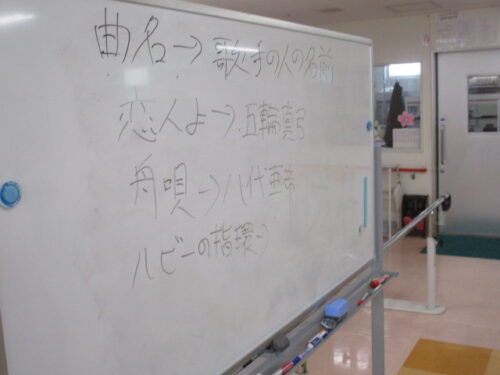 曲名→歌手の人の名前
恋人よ→五輪真弓
舟唄→八代亜紀
ルビーの指環→